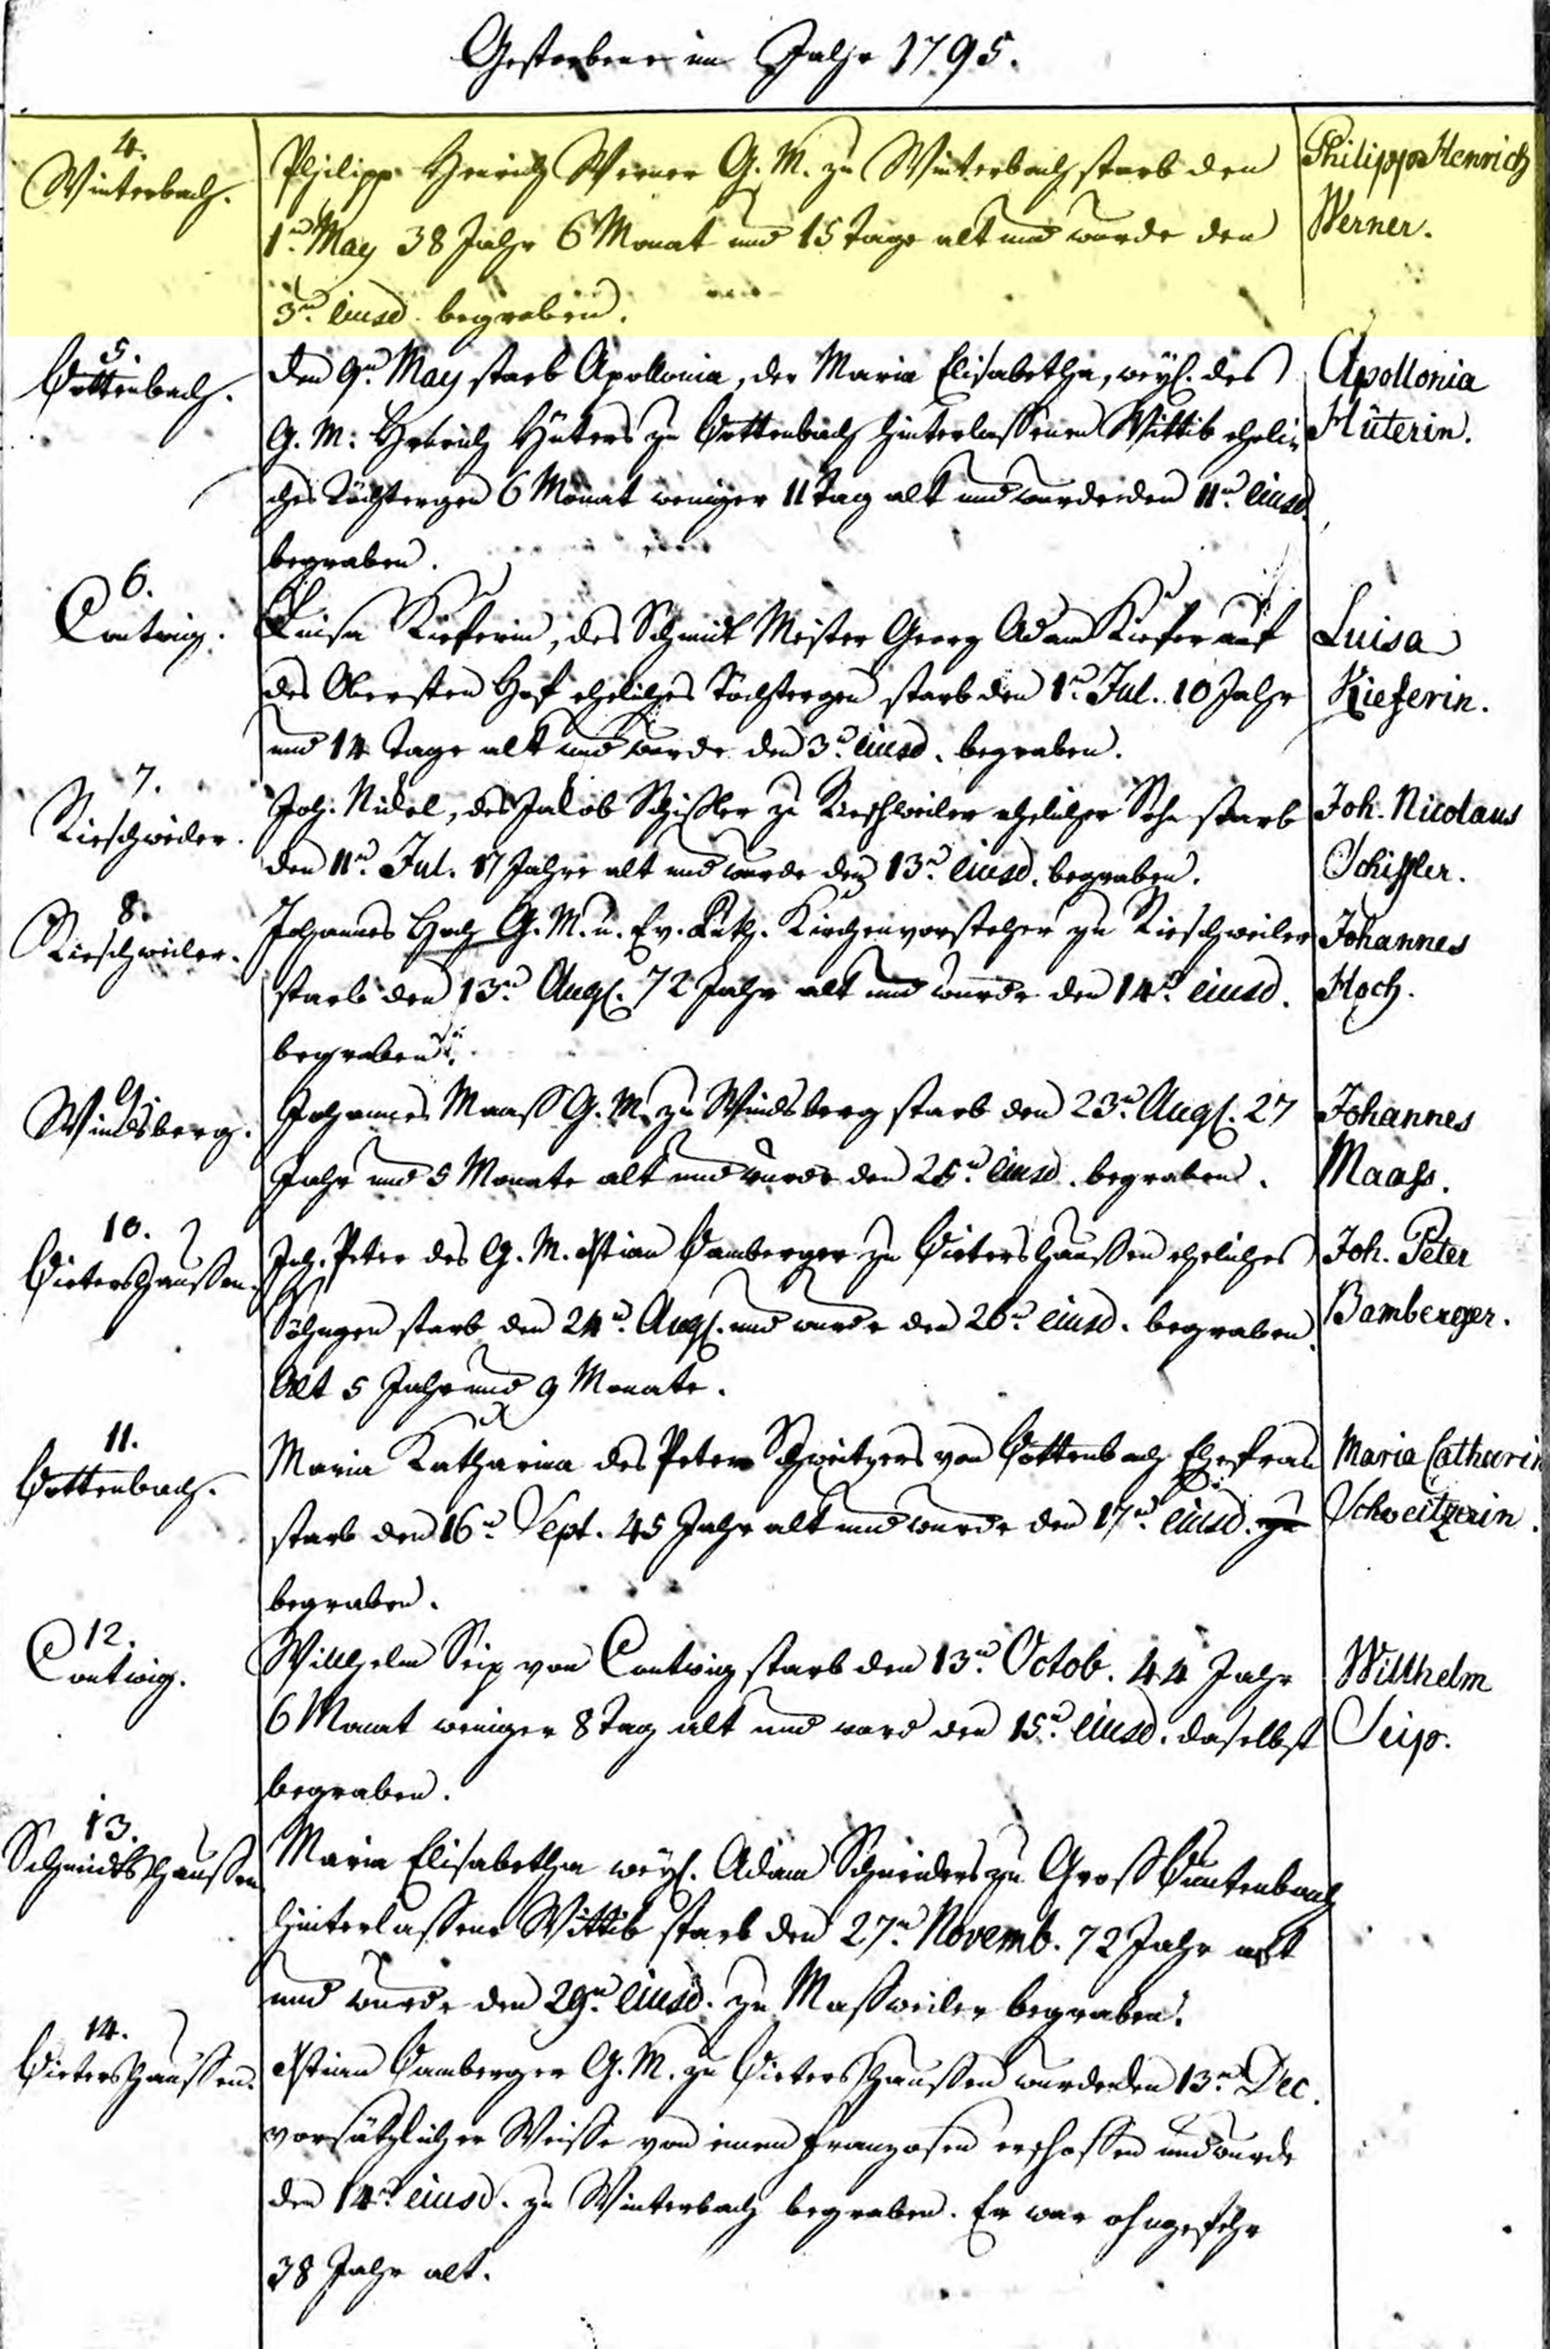 Gestorbene im Jahr 1795.
4.
Winterbach.
Philipp Henrich Werner G. M. zu Winterbach starb den
1n May 38 Jahr 6 Monat und 15 Tage alt und wurde den
3n eiusd. begraben.
Philipp Henrich
Werner.
5.
Bottenbach.
den 9n May starb Apollonia, der Maria Elisabetha, weyl. des
G. M. Henrich Hüters zu Bottenbach hinterlassenen Wittib eheli-
ches Töchtergen 6 Monat weniger 11 Tag alt und wurde den 11n eiusd.
begraben.
Apollonia
Hüterin.
6.
Contwig.
Luisa Kieferin, des Schmidt Meister Georg Adam Kiefer auf
des Obersten Hof eheliches Töchtergen starb den 1n Jul. 10 Jahr
und 14 Tage alt und wurde den 3n eiusd. begraben.
Luisa
Kieferin.
7.
Rieschweiler.
Joh. Nickel, des Jakob Schißler zu Rieschweiler ehelicher Sohn starb
den 11n Jul. 17 Jahre alt und wurde den 13n eiusd. begraben.
Joh. Nicolaus
Schißler.
8.
Rieschweiler.
Johannes Hoch G. M. u. Ev. Luth. Kirchenvorsteher zu Rieschweiler
starb den 13n Aug. 72 Jahr alt und wurde den 14n eiusd.
begraben.
Johannes
Hoch.
9.
Windsberg.
Johannes Maaß G. M. zu Windsberg starb den 23n Aug. 27
Jahr und 5 Monate alt und wurde den 25n eiusd. begraben.
Johannes
Maass.
10.
Dietershaußen.
Joh. Peter des G. M. Xstian Bamberger zu Dietershaußen eheliches
Söhngen starb den 24n Aug. und wurde den 26n eiusd. begraben.
Alt 5 Jahr und 9 Monate.
Joh. Peter
Bamberger.
11.
Bottenbach.
Maria Katharina des Peter Schweitzers von Bottenbach Ehefrau
starb den 16n Sept. 45 Jahr alt und wurde den 17n eiusd. zu
begraben.
Maria Catharin
Schweitzerin.
12.
Contwig.
Willhelm Seip von Contwig starb den 13n Octob. 44 Jahr
6 Monat weniger 8 Tag alt und ward den 15n eiusd. daselbst
begraben.
Willhelm
Seip.
13.
Schmidtshaußen
Maria Elisabetha weyl. Adam Schneiders zu Groß Buntenbach
hinterlassene Wittib starb den 27n Novemb. 72 Jahr alt
und wurde den 29n eiusd. zu Maßweiler begraben.
14.
Dietershaußen.
Xstian Bamberger G. M. zu Dietershaußen wurde den 13n Dec.
vorsätzlicher Weiße von einem Franzosen erschossen und wurde
den 14n eiusd. zu Winterbach begraben. Er war ohngefehr
38 Jahr alt.